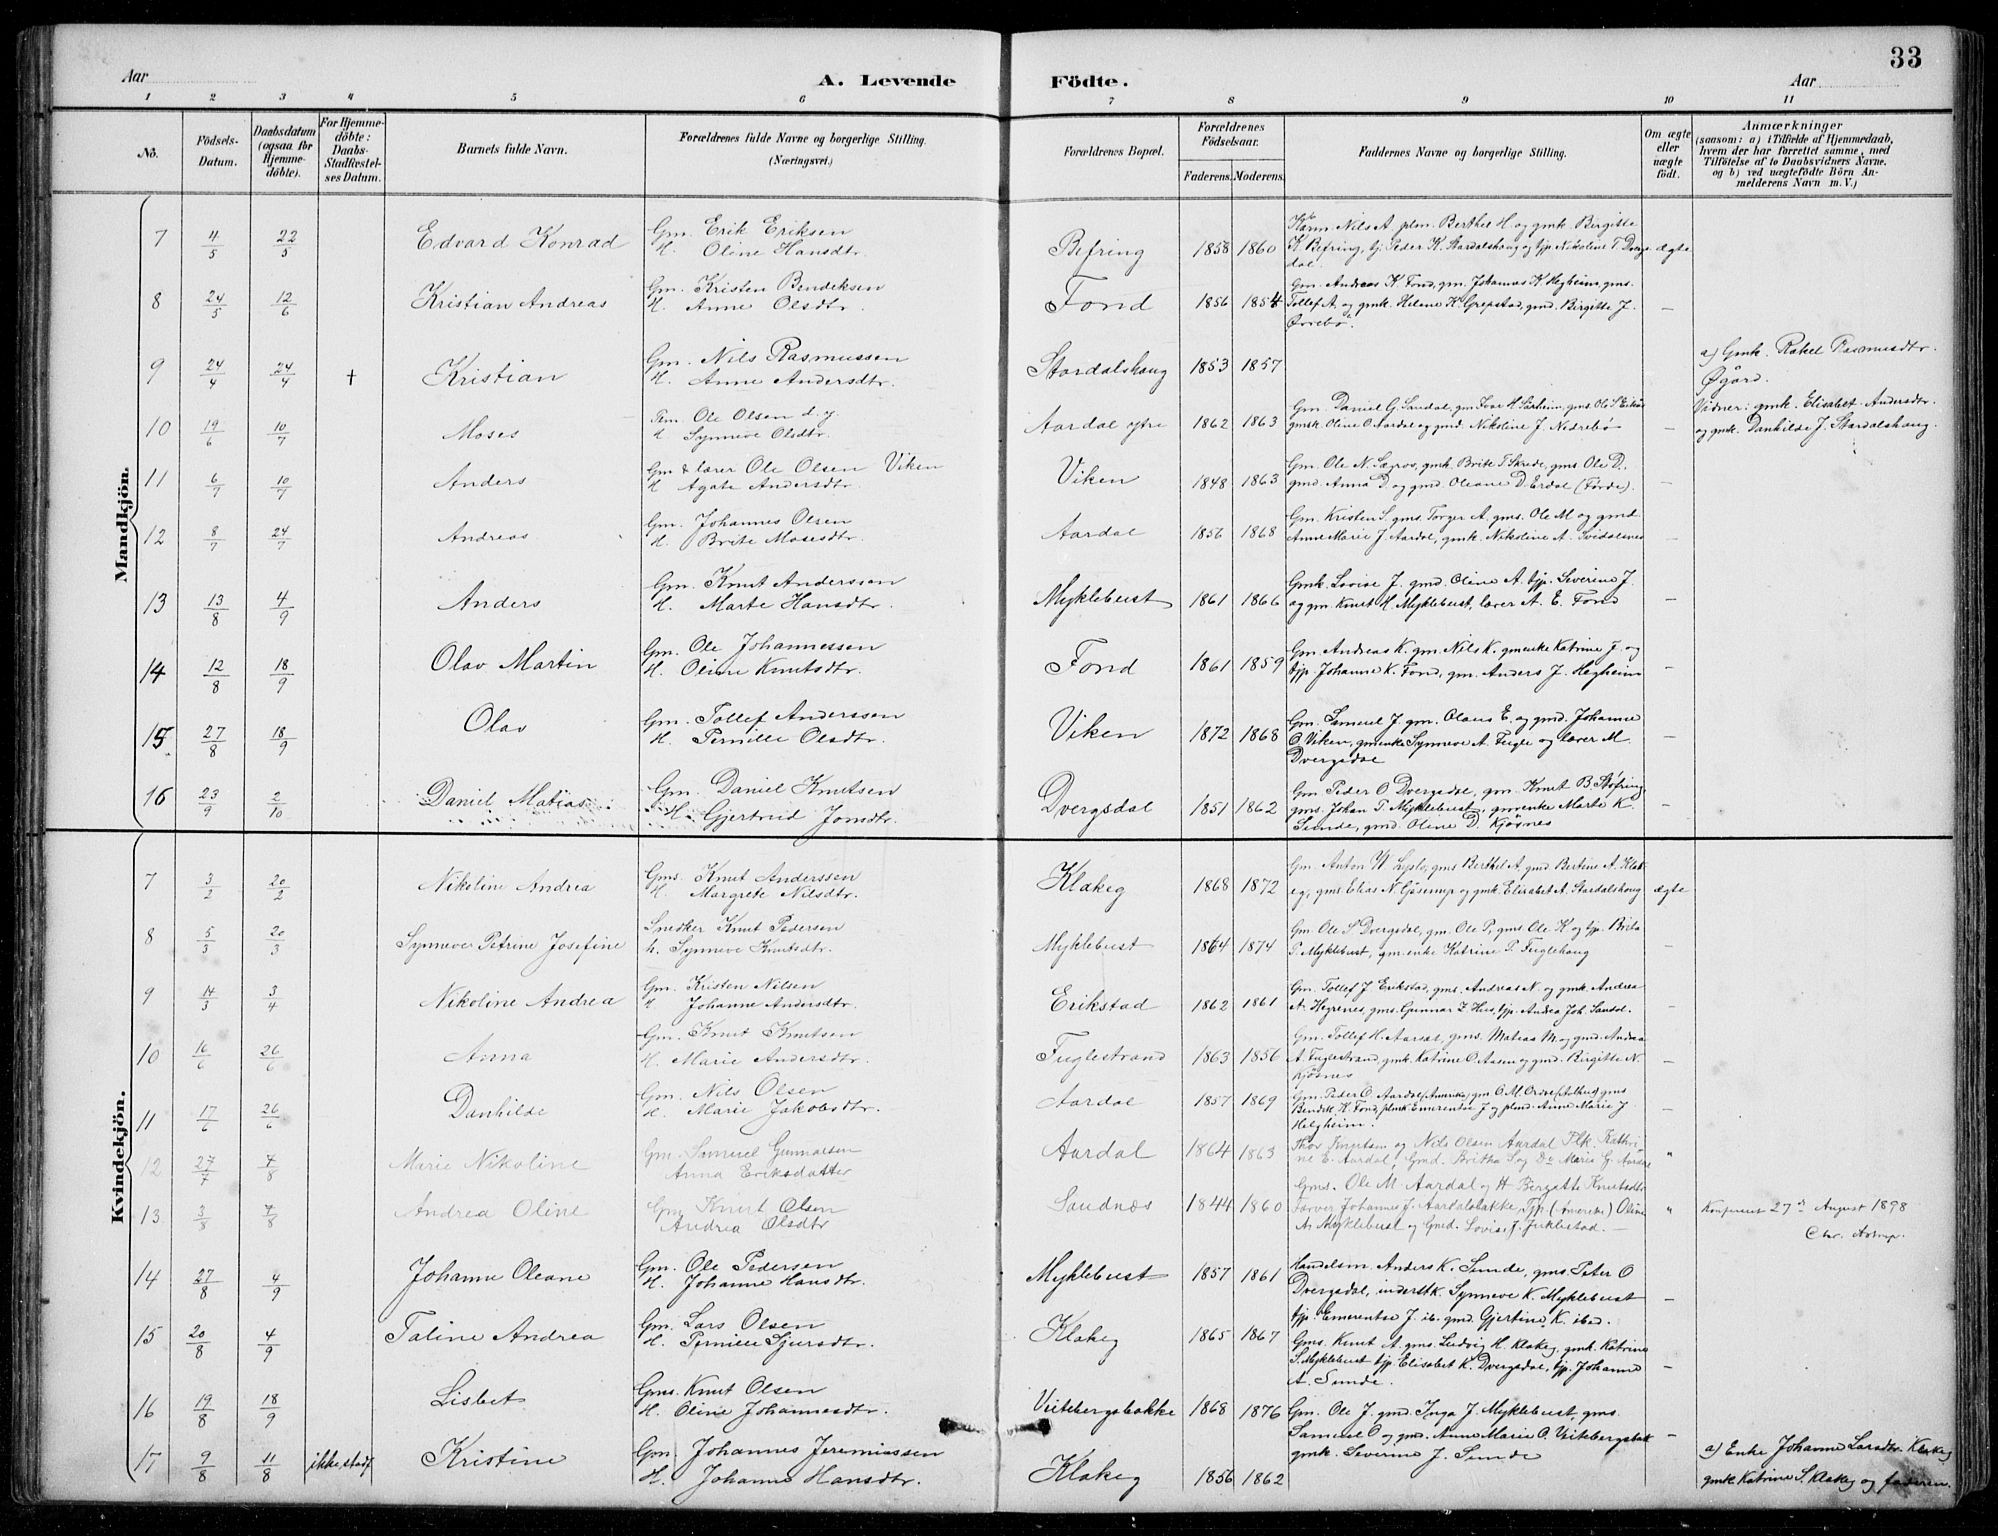 33
Aar
A. Levende
Födte.
Aar
1 2 3 4 5 6 7 8 9 10 11
No.
Födsels-
Datum.
Daabsdatum
(ogsaa for
Hjemme-
döbte).
For Hjemme-
döbte:
Daabs-
Stadfæstel-
ses Datum.
Barnets fulde Navn.
Forældrenes fulde Navne og borgerlige Stilling.
(Næringsvei.)
Forældrenes Bopæl.
Forældrenes
Födselsaar.
Faderens. Moderens.
Faddernes Navne og borgerlige Stilling.
Om ægte
eller
uægte
födt.
Anmærkninger
(saasom: a) i Tilfælde af Hjemmedaab,
hvem der har forrettet samme, med
Tilföielse af to Daabsvidners Navne.
og b) ved uægtefödte Börn An-
melderens Navn m. V.)
Mandkjön.
7 4/5 22/5 Edvard Konrad Gm. Erik Eriksen
H. Oline Hansdtr.
Befring 1858 1860 Nils A. plm. Berthel H. og gmk. Birgitte
K. Befring, tj. Peder K. Stardalshaug og tjp. Nikoline T. Dvergs-
dal. ægte
8 24/5 12/6 Kristian Andreas Gm. Kristen Bendiksen
H. Anne Olsdtr.
Fond 1856 1854 Gm. Andreas K. Fond, gm. Johannes K. Hegheim, gms.
Tollef A. og gmk. Helene K. Grepstad, gmd. Birgitte J.
Ørrebø. —
9 24/4 24/4 † Kristian Gm. Nils Rasmussen
H. Anne Andersdtr.
Stardalshaug 1853 1857
a) Gmk. Rakel Rasmusdtr.
Øgård.
Vidner: gmk. Elisabet Andersdtr.
og gmk. Danhilde J. Stardalshaug.
10 19/6 10/7 Moses Ole Olsen d. y.
H. Synneve Olsdtr.
Aardal ytre 1862 1863 Gm. Daniel G. Sandal, gm. Ivar H. Sårheim, gms. Ole S.
gmk. Oline O. Aardal og gmd. Nikoline J. Nedrebø —
11 6/7 10/7 Anders Gm & lærer Ole Olsen Viken
H. Agate Andersdtr.
Viken 1848 1863 Gm. Ole N. Sægros, gmk. Brite T. Skrede, gms. Ole D.
gmd. Anna D. og gmd. Oleane D. Erdal (Førde). —
12 8/7 24/7 Andreas Gm. Johannes Olsen
H. Brite Mosesdtr.
Aardal 1856 1868 Gm. Kristen S. gms. Torger A. gms. Ole M og gmd.
Anne Marie J. Aardal, gmk. Nikoline A. Svidalsnes —
13 13/8 4/9 Anders Gm. Knut Anderssen
H. Marte Hansdtr.
Myklebust 1861 1866 Gmk. Lovise J. gmd. Oline A. tjp. Severine J.
og gm. Knut H. Myklebust, lærer A. E. Fond —
14 12/8 18/9 Olav Martin Gm. Ole Johannessen
H. Oline Knutsdtr.
Fond 1861 1859 Gm. Andreas K. gm. Nils K. gmenke Katrine J. og
tjp. Johanne K. Fond, gm. Anders J. Hegheim —
15 27/8 18/9 Olav Gm. Tollef Anderssen
H. Pernille Olsdtr.
Viken 1872 1868 Gm. Samuel J. gm. Olaus E. og gmd. Johanne
O. Viken, gmenke Synneve A. Fugle og lærer M.
Dvergsdal —
16 23/9 2/10 Daniel Matias Gm. Daniel Knutsen
H. Gjertrud Jonsdtr.
Dvergsdal 1851 1862 Gm. Peder O. Dvergsdal, gm. Knut B. Støfring
gms. Johan T. Myklebust, gmenke Marte K.
Sunde, gmd. Oline D. Kjøsnes —
Kvindekjön.
7 3/2 20/2 Nikoline Andrea Gms. Knut Anderssen
H. Margrete Nilsdtr.
Klakeg 1868 1872 Gm. Anton W. gms Berthel A. gmd Bertine A. Klak-
eg, gms Elias N. og gmk. Elisabet A. Stardalshaug ægte
8 5/3 20/3 Synneve Petrine Josefine Snedker Knut Pedersen
h. Synneve Knutsdtr.
Myklebust 1864 1874 Gm. Ole S Dvergsdal, gm. Ole P, gms. Ole K og tjp. Brita
P. Myklebust, gm. enke Katrine P. Fuglehaug —
9 14/3 3/4 Nikoline Andrea Gm. Kristen Nilsen
H. Johanne Andersdtr.
Erikstad 1862 1861 Gm. Tollef J. Erikstad, gms. Andreas N. og gmk. Andrea
A. Hegrenes, gms. Gunnar Z. Hus, tjp. Andrea Joh. Sandal. —
10 16/6 26/6 Anna Gm. Knut Knutsen
H. Marie Andersdtr.
Fuglestrand 1863 1856 Gm. Tollef H. Aarset, gms. Matias M. og gmd. Andrea
A. Fuglestrand, gmk. Katrine O. Aasen og gmd. Birgitte N.
Kjøsnes —
11 17/6 26/6 Danhilde Gm. Nils Olsen
H. Marie Jakobsdtr.
Aardal 1857 1869 Gm. Peder O. Aardal (Amerika) gm O. M. gms
Bendik K. Fond, plmk Emerentse J og plmd. Anne Marie J.
Helgheim. —
12 27/7 7/8 Marie Nikoline Gm. Samuel Gunnarsen
Anna Eriksdatter
Aardal 1864 1863 Thor Knutsen og Nils Olsen Aardal Plk. Kathri-
ne E. Aardal, Gmd. Britha S og Do Marie G. Aardal "
13 3/8 7/8 Andrea Oline Gm Knut Olsen
Andrea Olsdtr
Sandnæs 1844 1860 Gms. Ole M. Aardal og H Bergitte Knutsdtr
Farver Johannes J. Aardalsbakke, Tjp. (Amerika) Oline
A. Myklebust og Gmd. Lovise J. Juklestad. — "
Konfereret 27de August 1898
Chr. Astrup.
14 27/8 4/9 Johanne Oleane Gm. Ole Pedersen
H. Johanne Hansdtr.
Myklebust 1857 1861 Handelsm. Anders K. Sunde, gms. Peter O
Dvergsdal, inderstk. Synneve K. Myklebust
tjp. Emerentse J. ib. gmd. Gjertine K. ibid. —
15 20/8 4/9 Taline Andrea Gm. Lars Olsen
H. Pernille Sjursdtr.
Klakeg 1865 1867 Gms. Knut A. gms. Ludvig H. Klakeg, gmk. Katrine
S. Myklebust tjp. Elisabet K. Dvergsdal, tjp. Johanne
A. Sunde. —
16 19/8 18/9 Lisbet Gms. Knut Olsen
H. Oline Johannesdtr.
Veitebergsbakke 1868 1876 Gm. Ole J. gmd. Inga J. Myklebust, gms.
Samuel O og gmd. Anne Marie O. Veitebergsbakk
gmk. Severine J. Sunde —
17 9/8 11/8 ikke stadf. Kristine Gm. Johannes Jeremiassen
H. Johanne Hansdtr.
Klakeg 1856 1862
a) Enke Johanne Larsdtr. Klakeg
gmk. Katrine S. Klakeg og faderen.